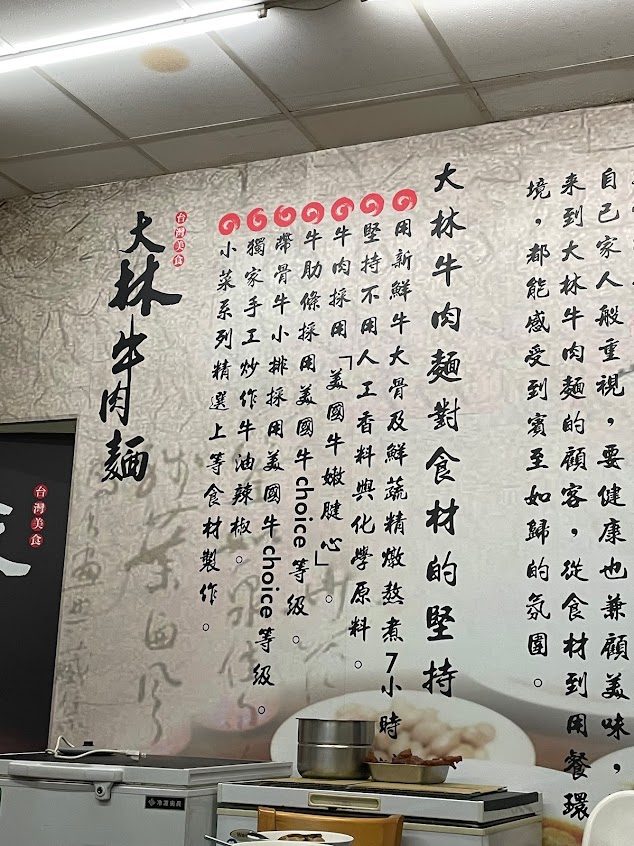 自己家人般重視，要健康也兼顧美味，
來到大林牛肉麵的顧客，從食材到用餐環
境，都能感受到賓至如歸的氛圍。
大林牛肉麵對食材的堅持
用新鮮牛大骨及鮮蔬精燉熬煮7小時
堅持不用人工香料與化學原料。
牛肉採用「美國牛嫩腱心」
牛肋條採用美國牛choice等級。
帶骨牛小排採用美國牛choice等級。
獨家手工炒作牛油辣椒。
小菜系列精選上等食材製作。
台灣美食
大林牛肉麵
台灣美食
冷凍廚房